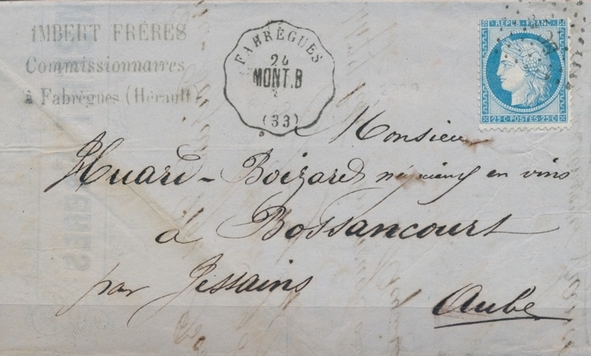 IMBERT FRÈRES
Commissionnaires
à Fabrègues (Hérault)
FABRÈGUES
24
MONT.B
(33)
REPUB. FRANC.
25 C. POSTES 25 C.
Monsieur
Huard-Boizard négociant en vins
à Bossancourt
par Jessains
Aube